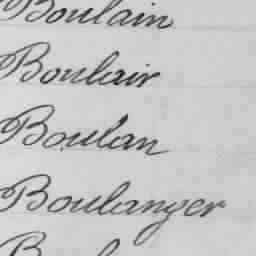 Boulain
Boulair
Boulan
Boulanger